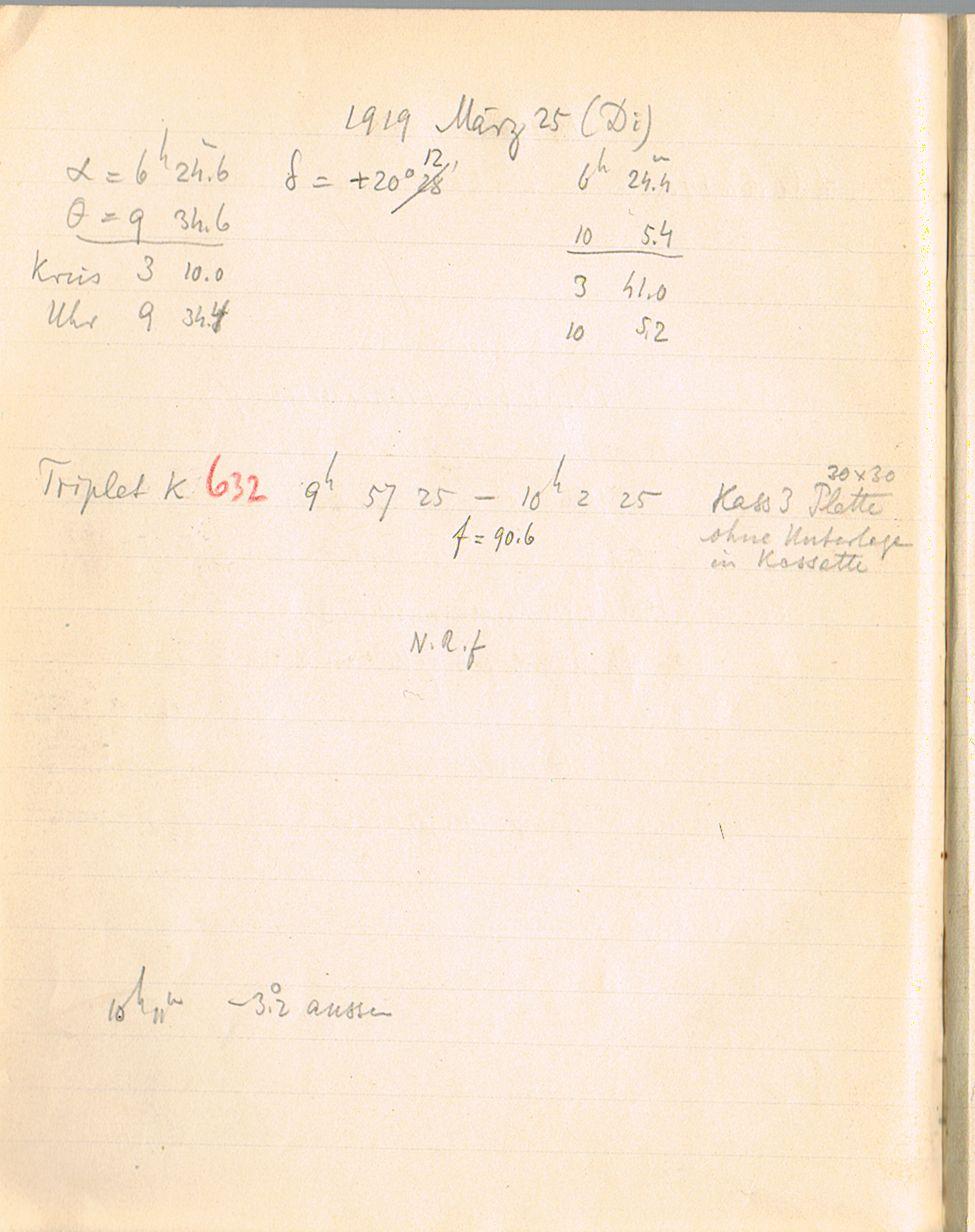 1919 März 25 (Di)
α = 6ʰ 24.ᵐ6 δ = +20° 12 28' 6ʰ 24.ᵐ4
θ = 9 34.6 10 5.4
Kreis 3 10.0 3 41.0
Uhr 9 34.4 10 5.2
Triplet K 632 9ʰ 57 25 – 10ʰ 2 25 Kass 3 Platte 20×30
f = 90.6 ohne Unterlage
in Kassette
N.R.f
10ʰ 11ᵐ –3.°2 aussen